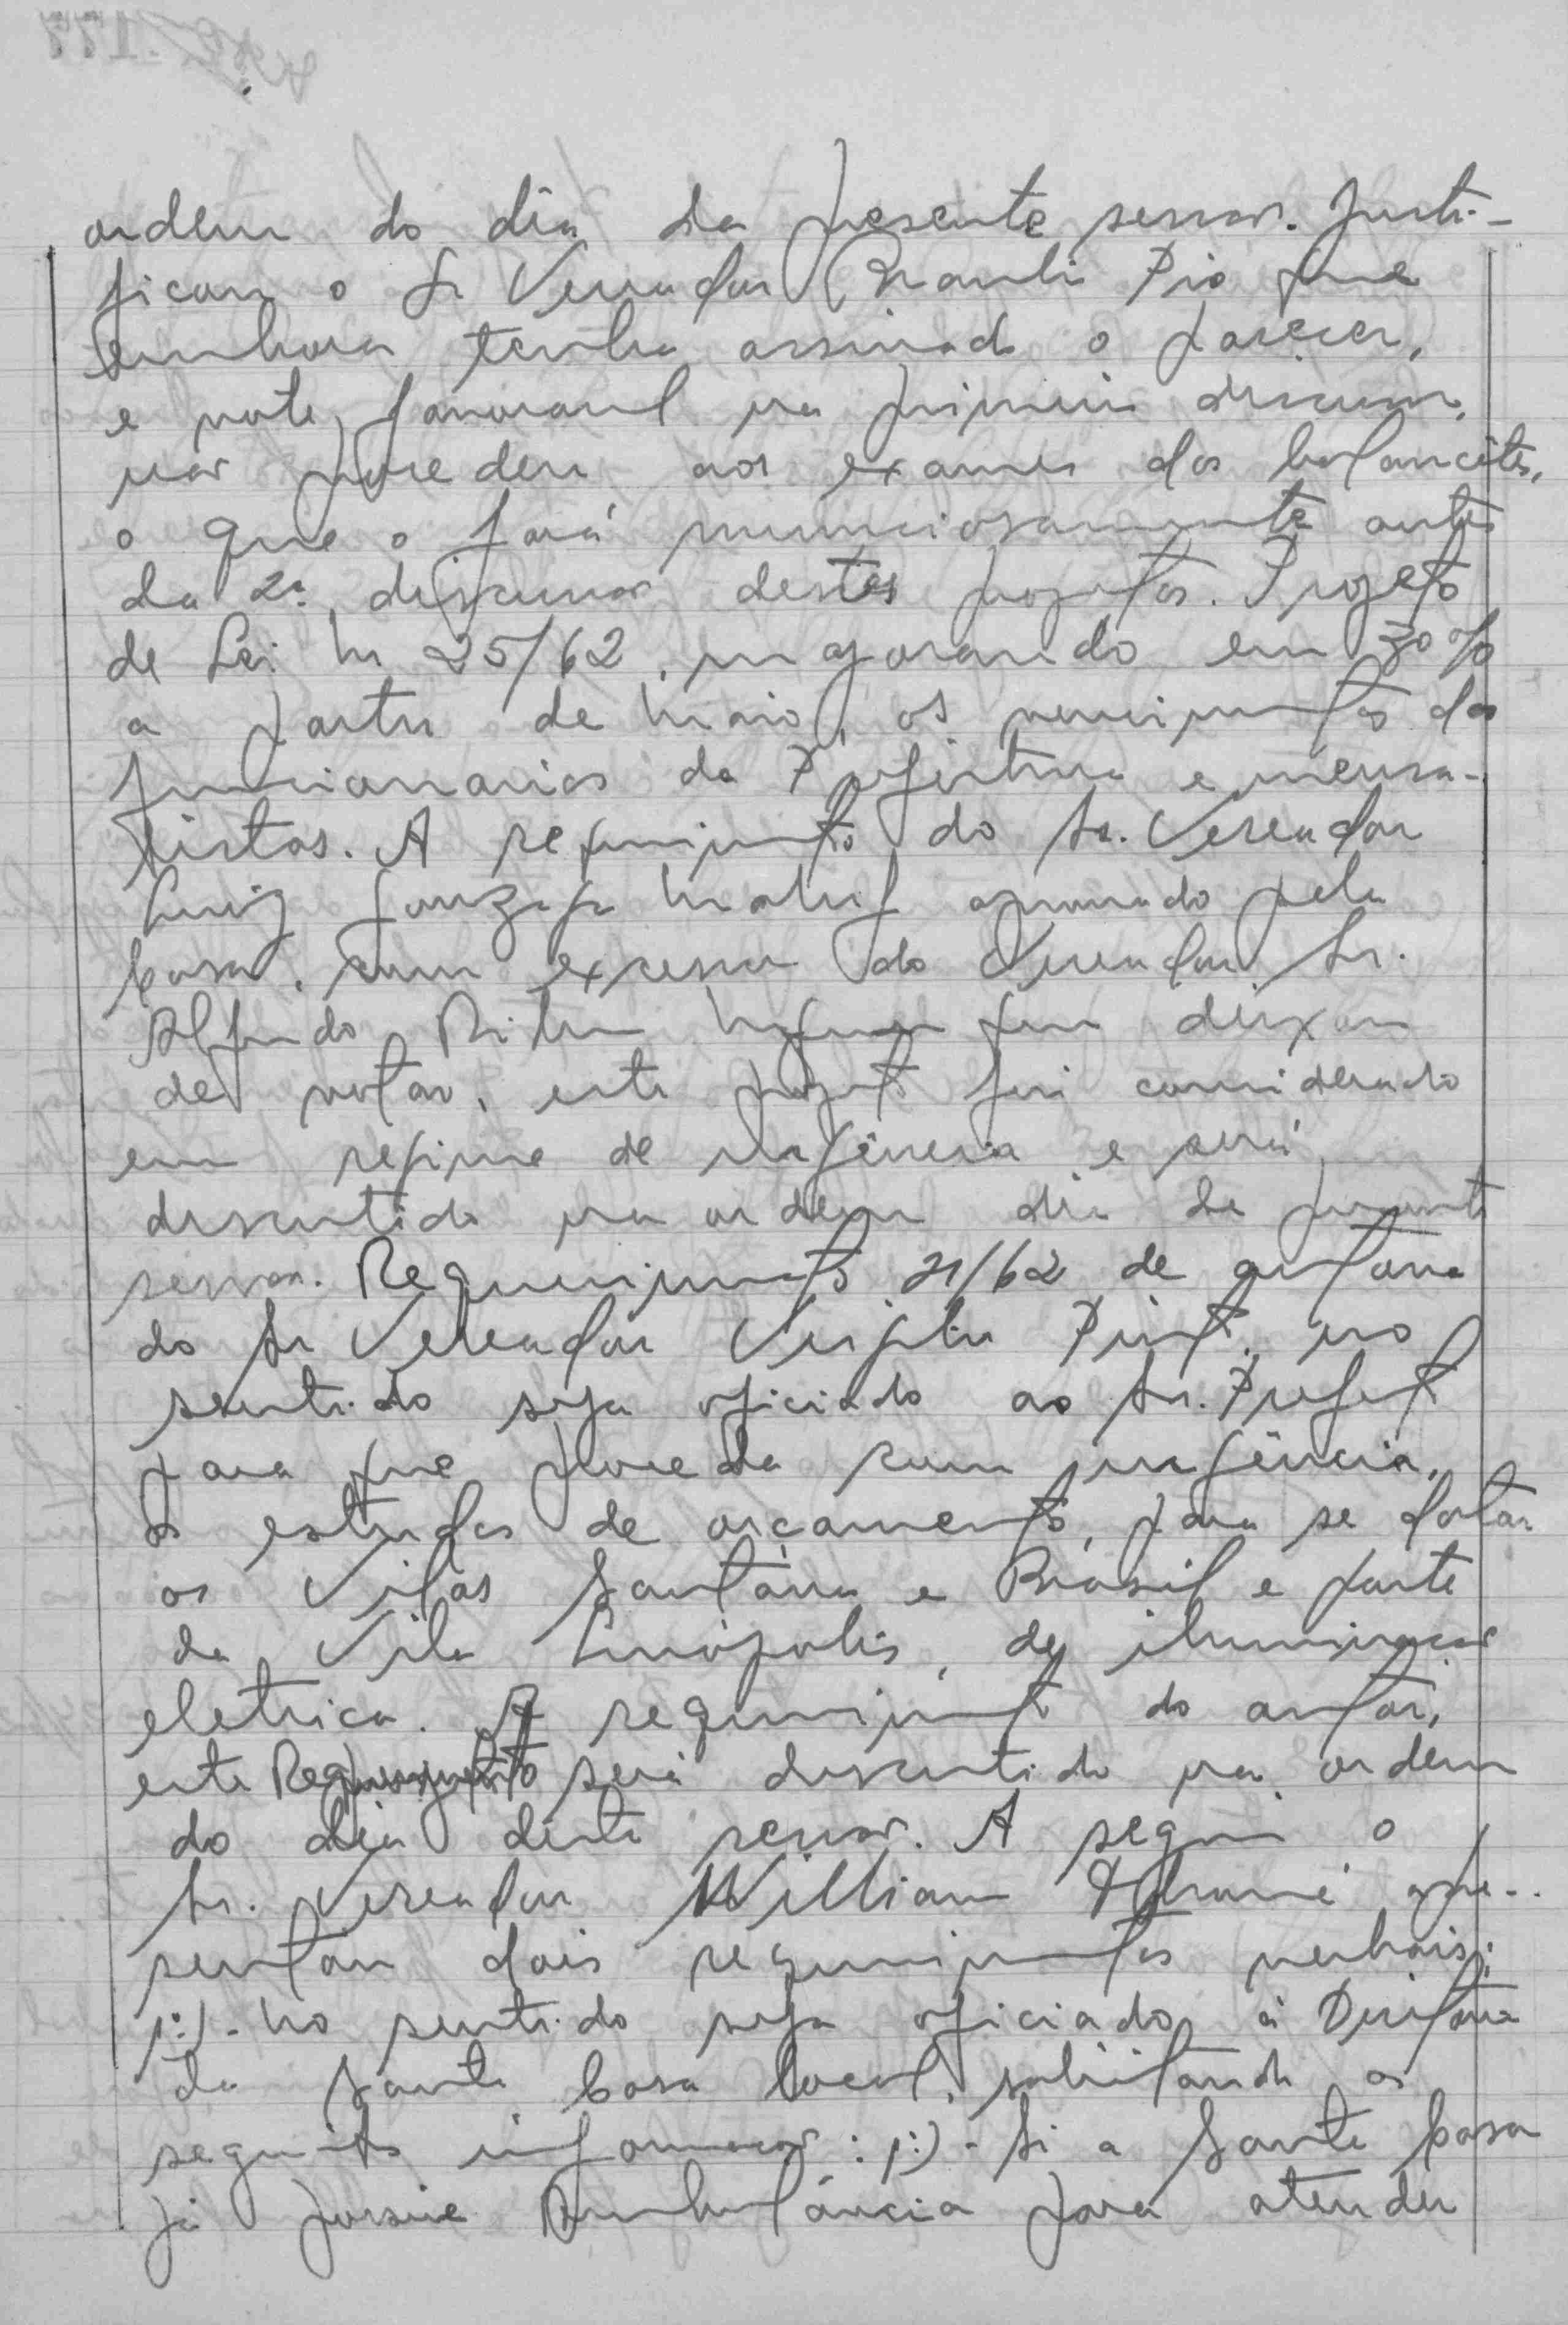 ordem do dia da presente sessão. Justi-
ficou o Sr Vereador Pio que
embora tenha assinado o parecer,
e vote favoravel na primeira discussão,
não procedeu aos exames dos balancêtes,
o que o fará minunciosamente antes
da 2ª discussão destes projetos. Projeto
de Lei nº 25/62, majorando em 30%
a partir de maio, os vencimentos dos
funcionarios da Prefeitura e mensa-
listas. A requerimento do Sr. Vereador
Luiz Gonzaga Maluf aprovado pela
Casa, com excessão do Vereador Sr.
Alfredo que deixou
de votar, este projeto foi considerado
em regime de urgência e será
discutido na ordem dia da presente
sessão. Requerimento 21/62 de autoria
do Sr Vereador Virgilio Pinto, no
sentido seja oficiado ao Sr. Prefeito
para que proceda com urgência,
os estudos de orçamento, para se dotar
as Vilas Santána e Brasil e parte
da Vila Linópolis, de iluminação
eletrica. A requerimento do autor,
este Requerimento será discutido na ordem
do dia desta sessão. A seguir o
Sr. Vereador William apre-
sentou dois requerimentos verbais;
1º)- No sentido seja oficiado à Diretoria
da Santa Casa local, solicitando as
seguintes informações: 1º)- Si a Santa Casa
já possue Ambulância para atender